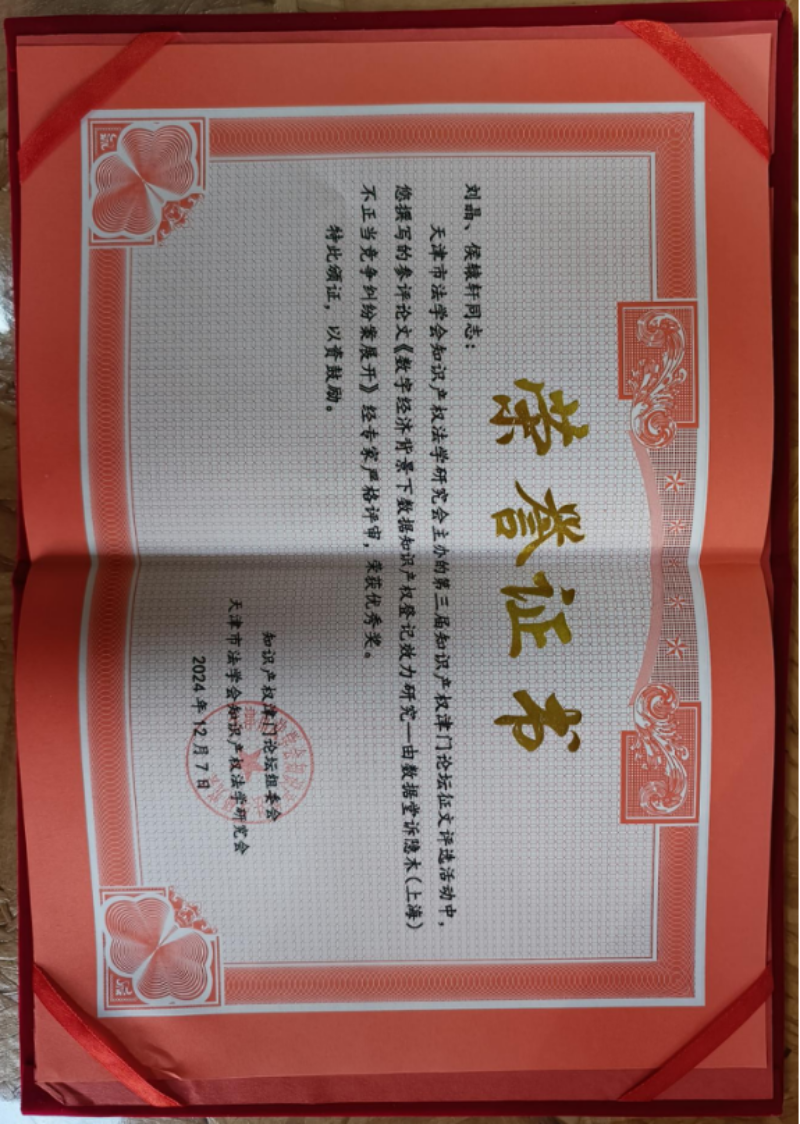 荣誉证书
刘晶、侯雍轩同志：
天津市法学会知识产权法学研究会主办的第三届知识产权津门论坛征文评选活动中，
您撰写的参评论文《数字经济背景下数据知识产权登记效力研究—由数据堂诉隐木（上海）
不正当竞争纠纷案展开》经专家严格评审，荣获优秀奖。
特此颁证，以资鼓励。
知识产权津门论坛组委会
天津市法学会知识产权法学研究会
2024年12月7日